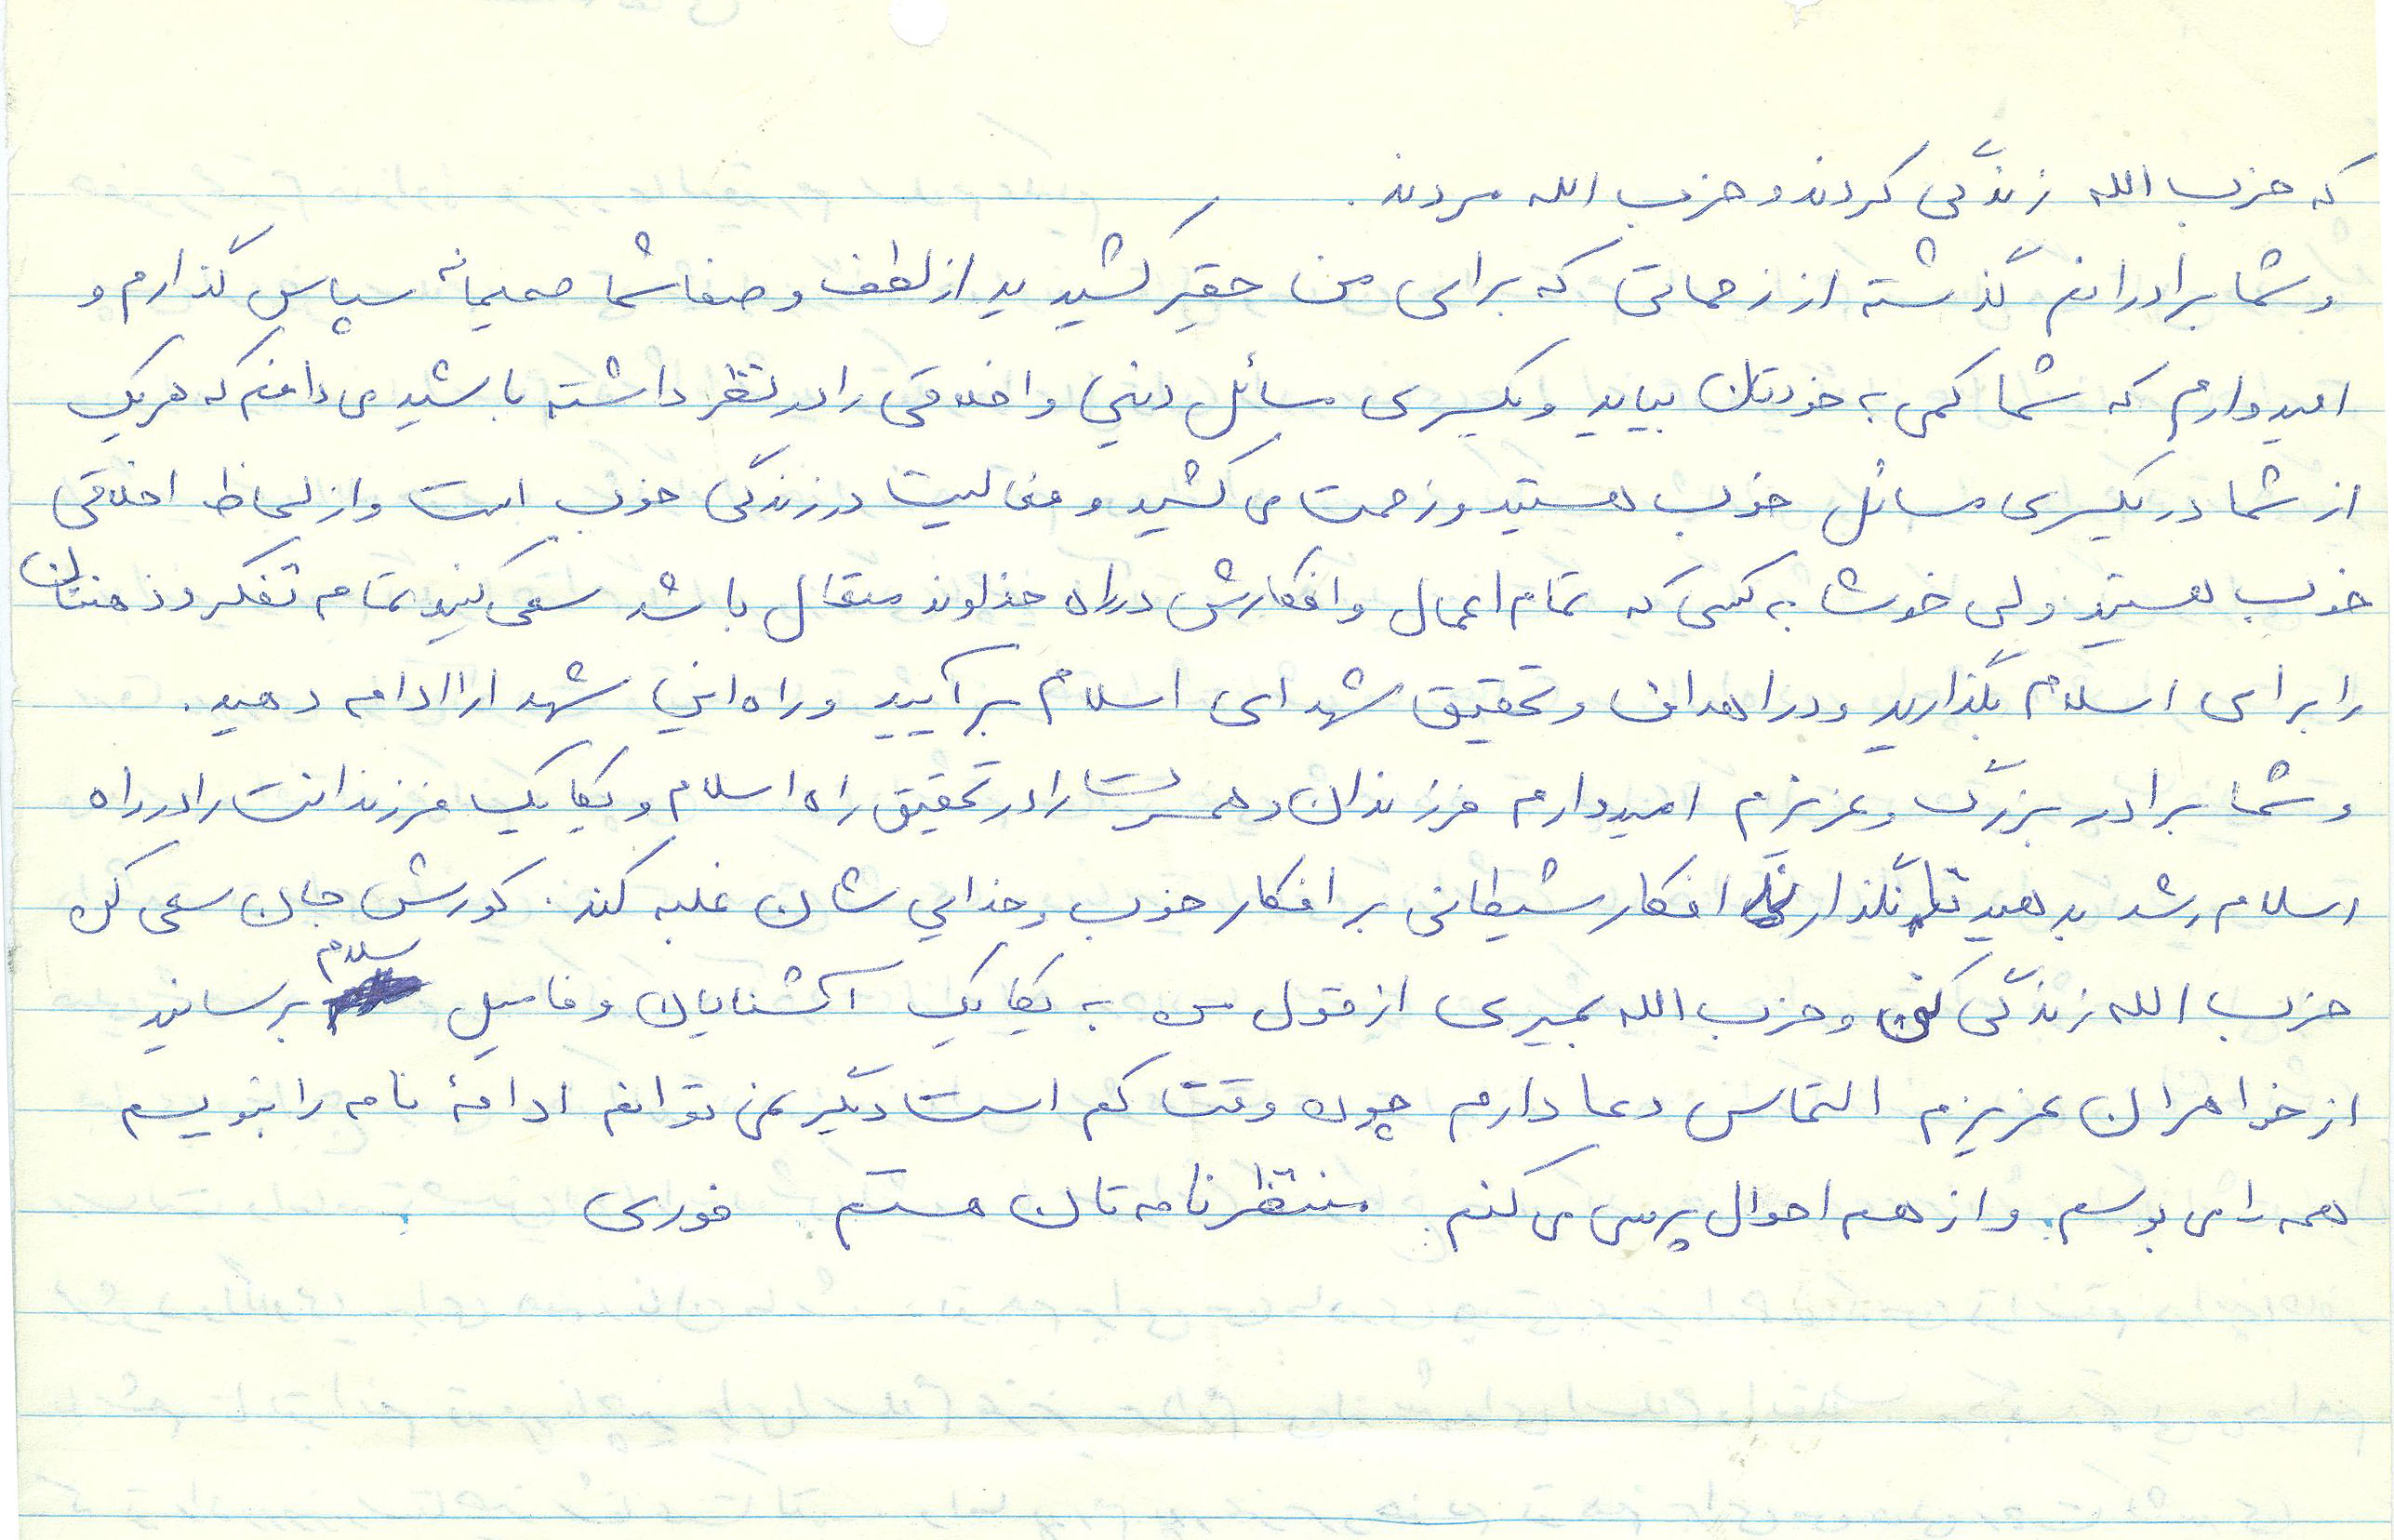 که حزب الله زندگی کردند و حزب الله مردند.
و شما برادرانم گذشته از زحماتی که برای من حقیر کشیدید از لطف و صفا شما صمیمانه سپاس گذارم و
امیدوارم که شما کمی به خودتان بیاید و یکسری مسائل دینی و اخلاقی را در نظر داشته باشید می دانم که هریک
از شما در یکسری مسائل خوب هستید و زحمت می کشید و فعالیت در زندگی خوب است و از لحاظ اخلاقی
خوب هستید ولی خوشا به کسی که تمام اعمال و افکارش در راه خداوند متعال باشد سعی کنید تمام تفکر و ذهنتان
را برای اسلام بگذارید و در اهداف و تحقیق شهدای اسلام برآیید و راه این شهدا را ادامه دهید.
و شما برادر بزرگ و عزیزم امیدوارم فرزندان و همسرت را در تحقیق راه اسلام و یکایک فرزندانت را در راه
اسلام رشد بدهید نگذار افکار شیطانی بر افکار خوب و خدایی شان غلبه کند. کورش جان سعی کن
حزب الله زندگی کنی و حزب الله بمیری از قول من به یکایک آشنایان و فامیل سلام برسانید
از خواهران عزیزم التماس دعا دارم چون وقت کم است دیگر نمی توانم ادامهٔ نامه را بنویسم
همه را می بوسم. و از همه احوال پرسی می کنم. منتظر نامه تان هستم فوری